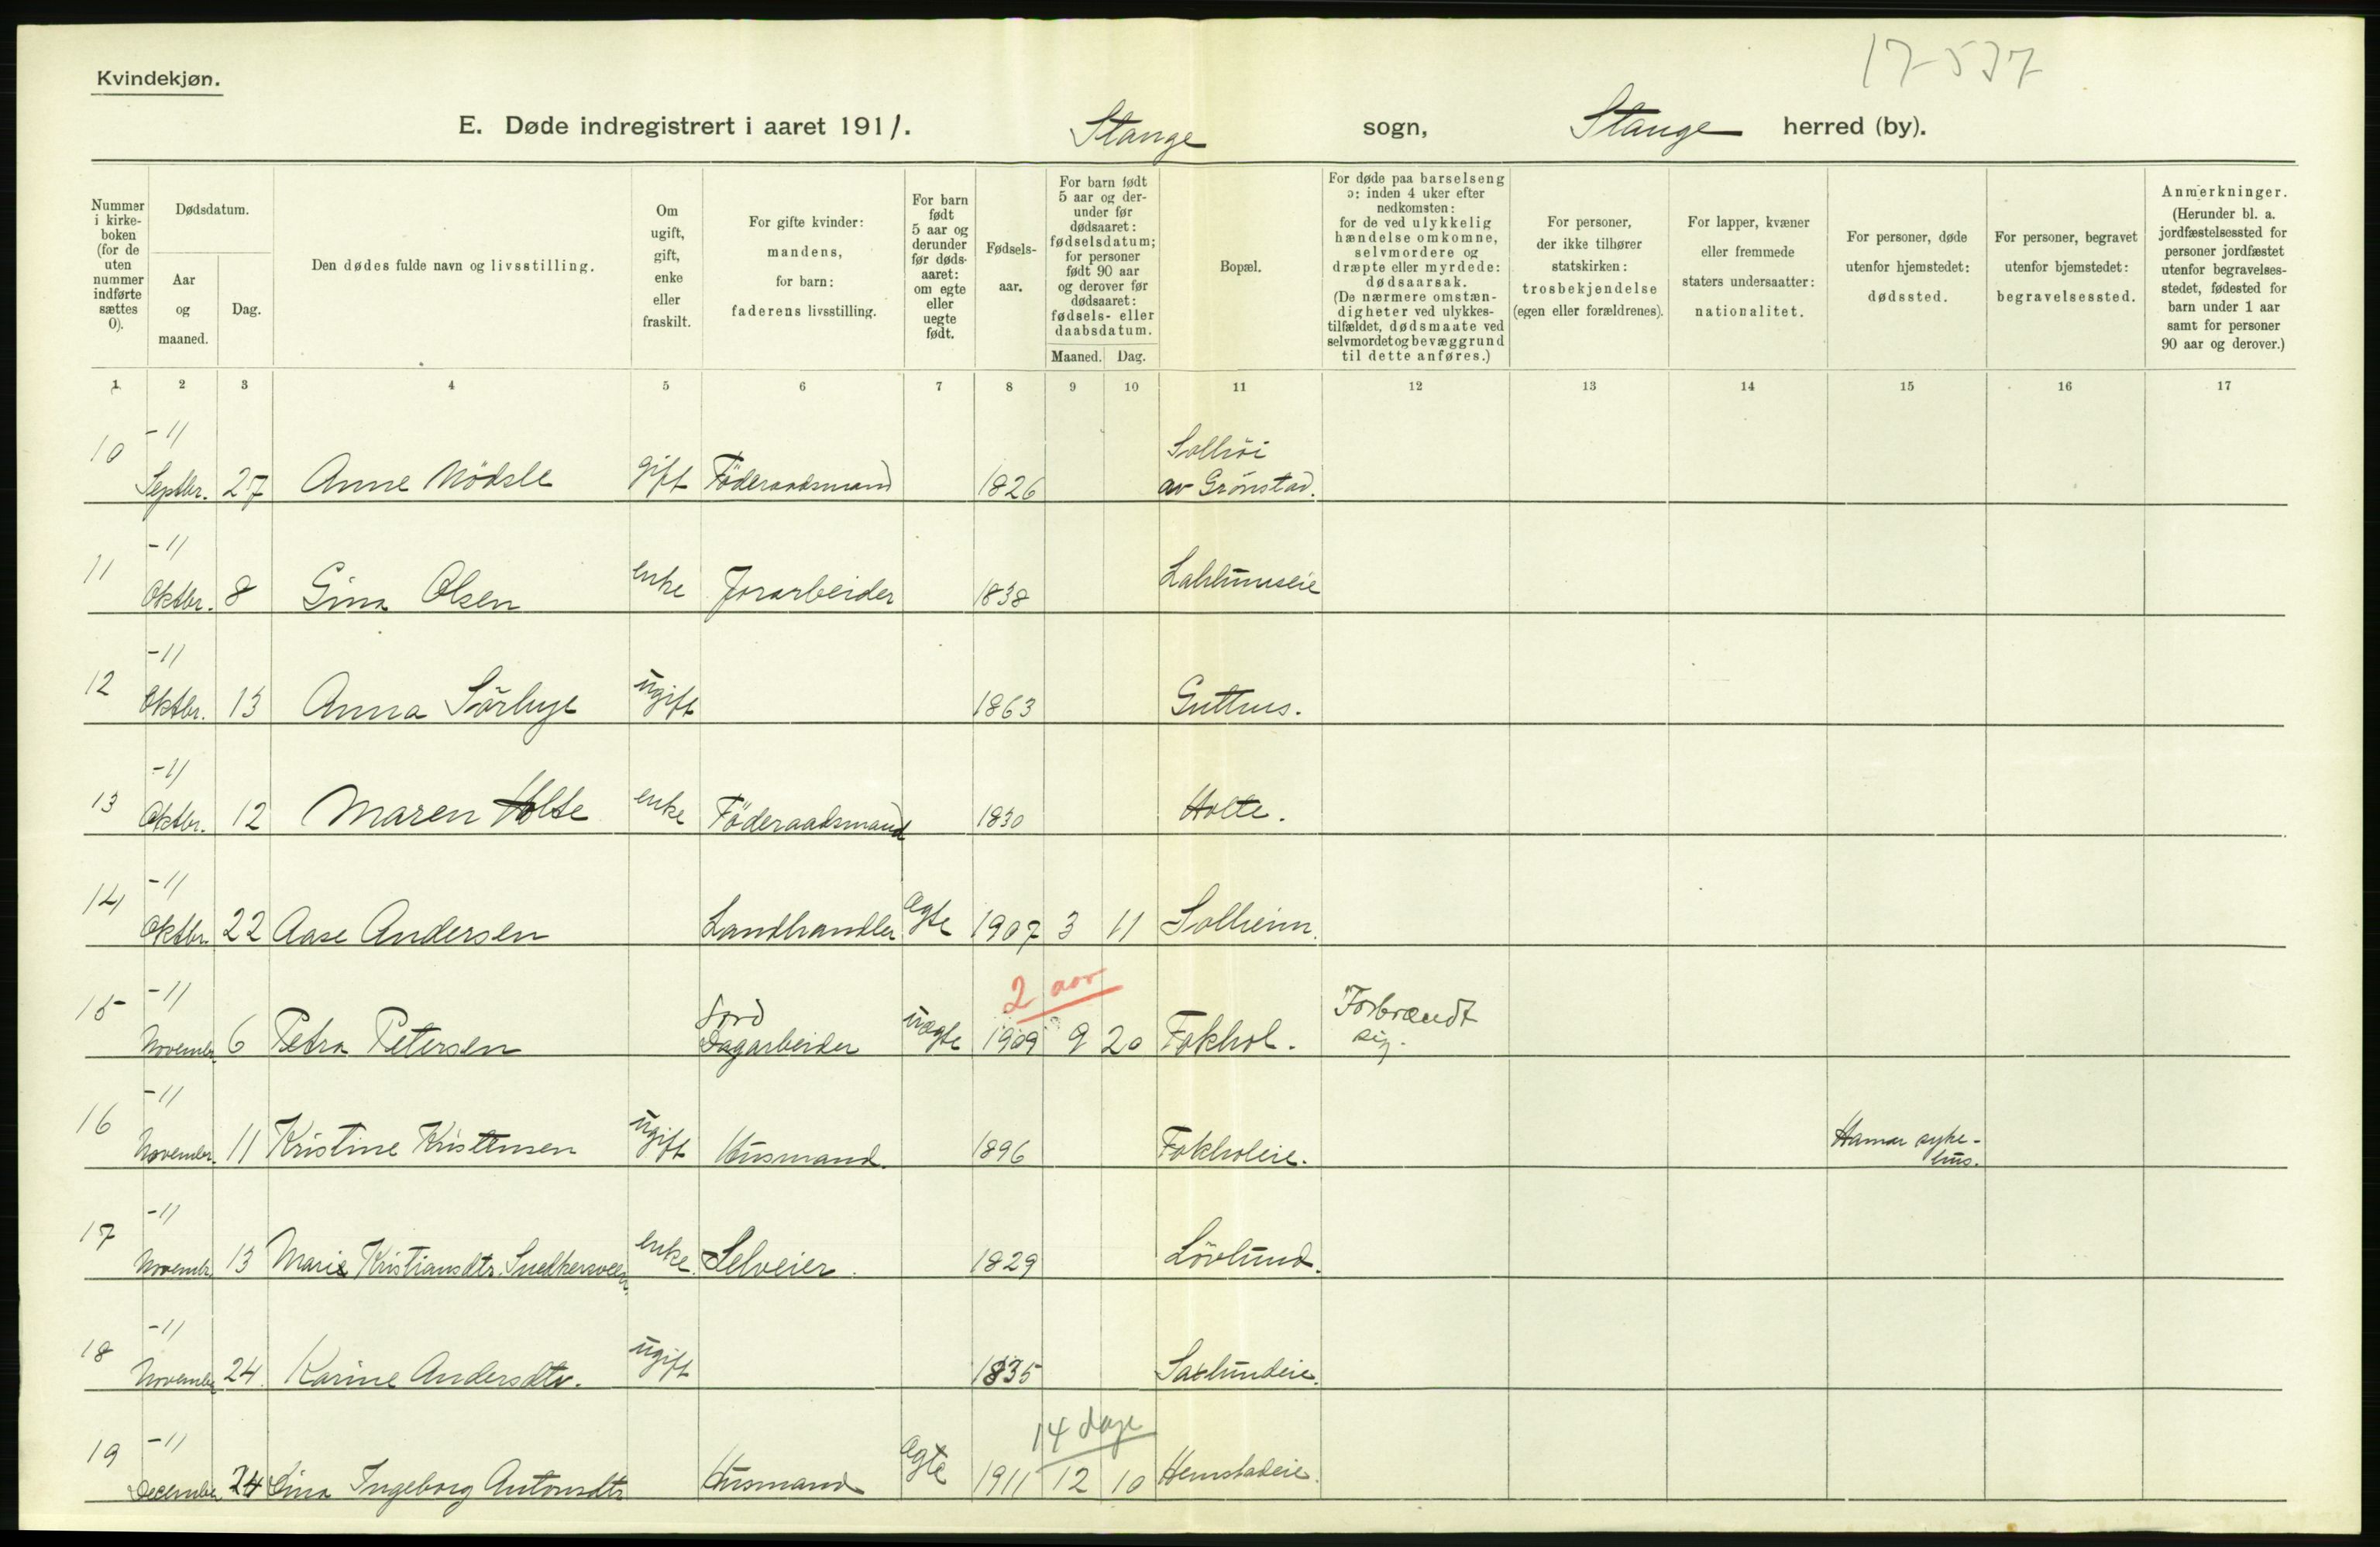 17-537
Kvindekjøn.
E. Døde indregistrert i aaret 1911. Stange sogn, Stange herred (by).
Nummer i kirke-boken (for de uten nummer indførte sættes 0).
Dødsdatum.
Aar og maaned.
Dag.
Den dødes fulde navn og livsstilling.
Om ugift, gift, enke eller fraskilt.
For gifte kvinder: mandens, for barn: faderens livsstilling.
For barn født 5 aar og derunder før døds-aaret: om egte eller uegte født.
Fødsels-aar.
For barn født 5 aar og der-under før dødsaaret: fødselsdatum; for personer født 90 aar og derover før dødsaaret: fødsels- eller daabsdatum.
Maaned. Dag.
Bopæl.
For døde paa barselseng ɔ: inden 4 uker efter nedkomsten: for de ved ulykkelig hændelse omkomne, selvmordere og dræpte eller myrdede: dødsaarsak. (De nærmere omstæn-digheter ved ulykkes-tilfældet, dødsmaate ved selvmordet og bevæggrund til dette anføres.)
For personer, der ikke tilhører statskirken: trosbekjendelse (egen eller forældrenes).
For lapper, kvæner eller fremmede staters undersaatter: nationalitet.
For personer, døde utenfor hjemstedet: dødssted.
For personer, begravet utenfor hjemstedet: begravelsessted.
Anmerkninger. (Herunder bl. a. jordfæstelsessted for personer jordfæstet utenfor begravelses-stedet, fødested for barn under 1 aar samt for personer 90 aar og derover.)
1 2 3 4 5 6 7 8 9 10 11 12 13 14 15 16 17
10 -11 Septbr. 27 Anne Mödsle gift Föderaadsmand 1826 Solhöi av Grönstad.
11 -11 Oktbr. 8 Gina Olsen enke Jorarbeider 1838
12 -11 Oktbr. 13 Anna Sörbye ugift 1863 Guttus.
13 -11 Oktbr. 12 Maren Holte enke Föderaadsmand 1830 Holte.
14 -11 Oktbr. 22 Aase Andersen Landhandler egte 1907 3 11 Solheim.
2 aar
15 -11 Novembr. 6 Petra Petersen Jord Dagarbeider uegte 1909 9 20 Fokhol. Forbrændt sig.
16 -11 November. 11 Kristine Kristensen ugift Husmand. 1896 Fokholeie. Hamar syke-hus.
17 -11 Novembr. 13 Marie Kristiansdtr. Snedkersveen. enke. Selveier. 1829 Lövlund.
18 -11 November 24. Karine Andersdtr. ugift 1835 Saxlundeie.
14 dage
19 -11 December 24 Lina Ingeborg Antonsdtr Husmand egte 1911 12 10 Hemstadeie.